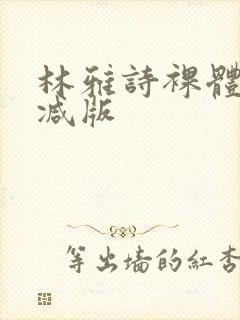 林雅詩裸體
减版
等出墙的紅杏